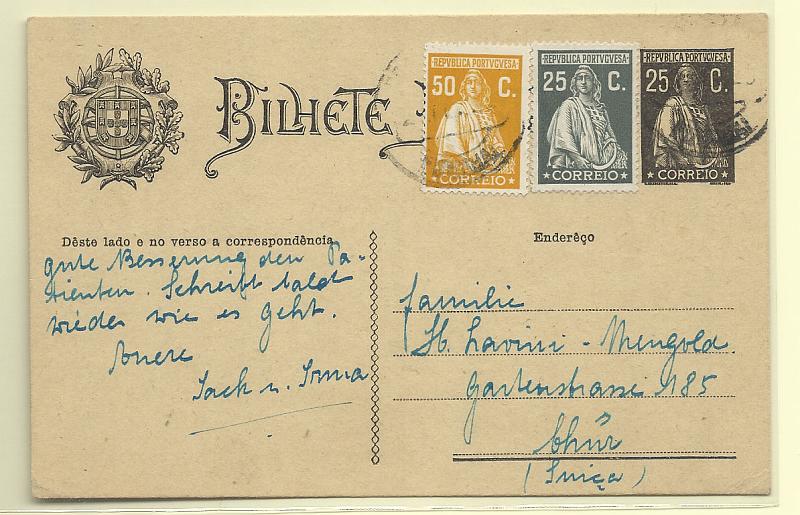 BILHETE
REPVBLICA PORTVGVESA
50 C.
CORREIO
REPVBLICA PORTVGVESA
25 C.
CORREIO
REPVBLICA PORTVGVESA
25 C.
CORREIO
Dêste lado e no verso a correspondência
gute Besserung den Pa-
tienten. Schreibt bald
wieder wie es geht.
Jack u. Irma
Enderêço
Familie
Lavini - Mengold
Gartenstrasse 185
Chûr
(Suiça)